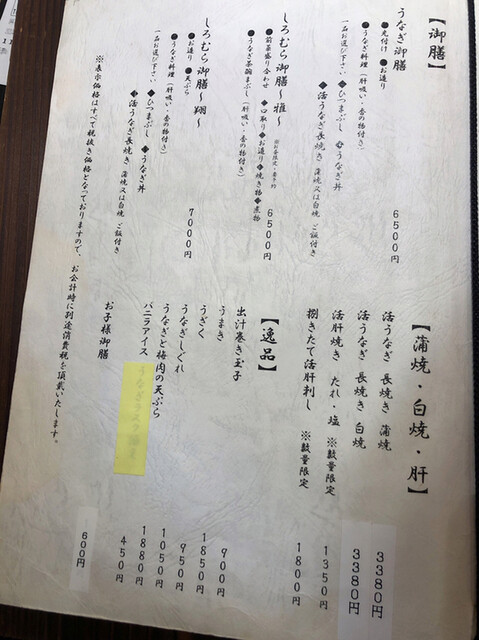 【御膳】
うなぎ御膳
●先付け ●お造り
●うなぎ料理（肝吸い・香の物付き）
一品お選び下さい ◆ひつまぶし ◆うなぎ丼
◆活うなぎ長焼き 蒲焼又は白焼 ご飯付き
6500円
しろむら御膳～雅～
※お昼限定・要予約
●前菜盛り合わせ ◆口取り ◆お造り ◆焼き物 ◆煮物
●うなぎ茶碗まぶし（肝吸い・香の物付き）
6500円
しろむら御膳～翔～
●お造り ●天ぷら
●うなぎ料理（肝吸い・香の物付き）
一品お選び下さい ◆ひつまぶし ◆うなぎ丼
◆活うなぎ長焼き 蒲焼又は白焼 ご飯付き
7000円
※表示価格はすべて税抜き価格となっておりますので、お会計時に別途消費税を頂戴いたします。
【蒲焼・白焼・肝】
活うなぎ 長焼き 蒲焼 3380円
活うなぎ 長焼き 白焼 3380円
活肝焼き たれ・塩 ※数量限定 1350円
捌きたて活肝刺し ※数量限定 1800円
【逸品】
出汁巻き玉子 900円
うまき 1850円
うざく 950円
うなぎしぐれ 1050円
うなぎと梅肉の天ぷら 1880円
バニラアイス 450円
お子様御膳 600円